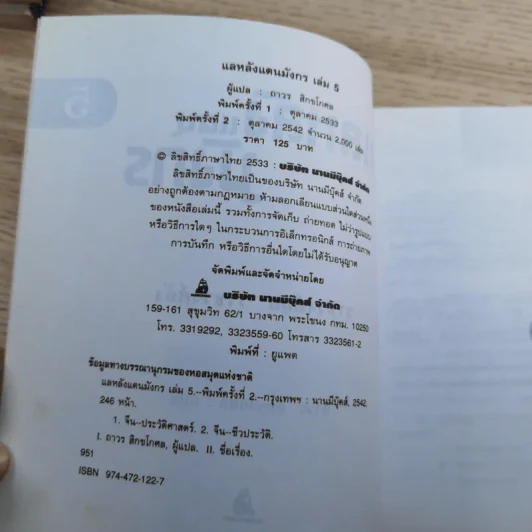 แลหลังแดนมังกร เล่ม 5
ผู้แปล : ถาวร สิกขโกศล
พิมพ์ครั้งที่ 1 : ตุลาคม 2533
พิมพ์ครั้งที่ 2 : ตุลาคม 2542 จำนวน 2,000 เล่ม
ราคา 125 บาท
© ลิขสิทธิ์ภาษาไทย 2533 : บริษัท นานมีบุ๊คส์ จำกัด
ลิขสิทธิ์ภาษาไทยเป็นของบริษัท นานมีบุ๊คส์ จำกัด
อย่างถูกต้องตามกฎหมาย ห้ามลอกเลียนแบบส่วนใดส่วนหนึ่ง
ของหนังสือเล่มนี้ รวมทั้งการจัดเก็บ ถ่ายทอด ไม่ว่ารูปแบบ
หรือวิธีการใดๆ ในกระบวนการอิเล็กทรอนิกส์ การถ่ายภาพ
การบันทึก หรือวิธีการอื่นใดโดยไม่ได้รับอนุญาต
จัดพิมพ์และจัดจำหน่ายโดย
บริษัท นานมีบุ๊คส์ จำกัด
159-161 สุขุมวิท 62/1 บางจาก พระโขนง กทม. 10250
โทร. 3319292, 3323559-60 โทรสาร 3323561-2
พิมพ์ที่ : ยูแพด
ข้อมูลทางบรรณานุกรมของหอสมุดแห่งชาติ
แลหลังแดนมังกร เล่ม 5.--พิมพ์ครั้งที่ 2.--กรุงเทพฯ : นานมีบุ๊คส์, 2542.
246 หน้า.
1. จีน--ประวัติศาสตร์. 2. จีน--ชีวประวัติ.
I. ถาวร สิกขโกศล, ผู้แปล. II. ชื่อเรื่อง.
951
ISBN 974-472-122-7